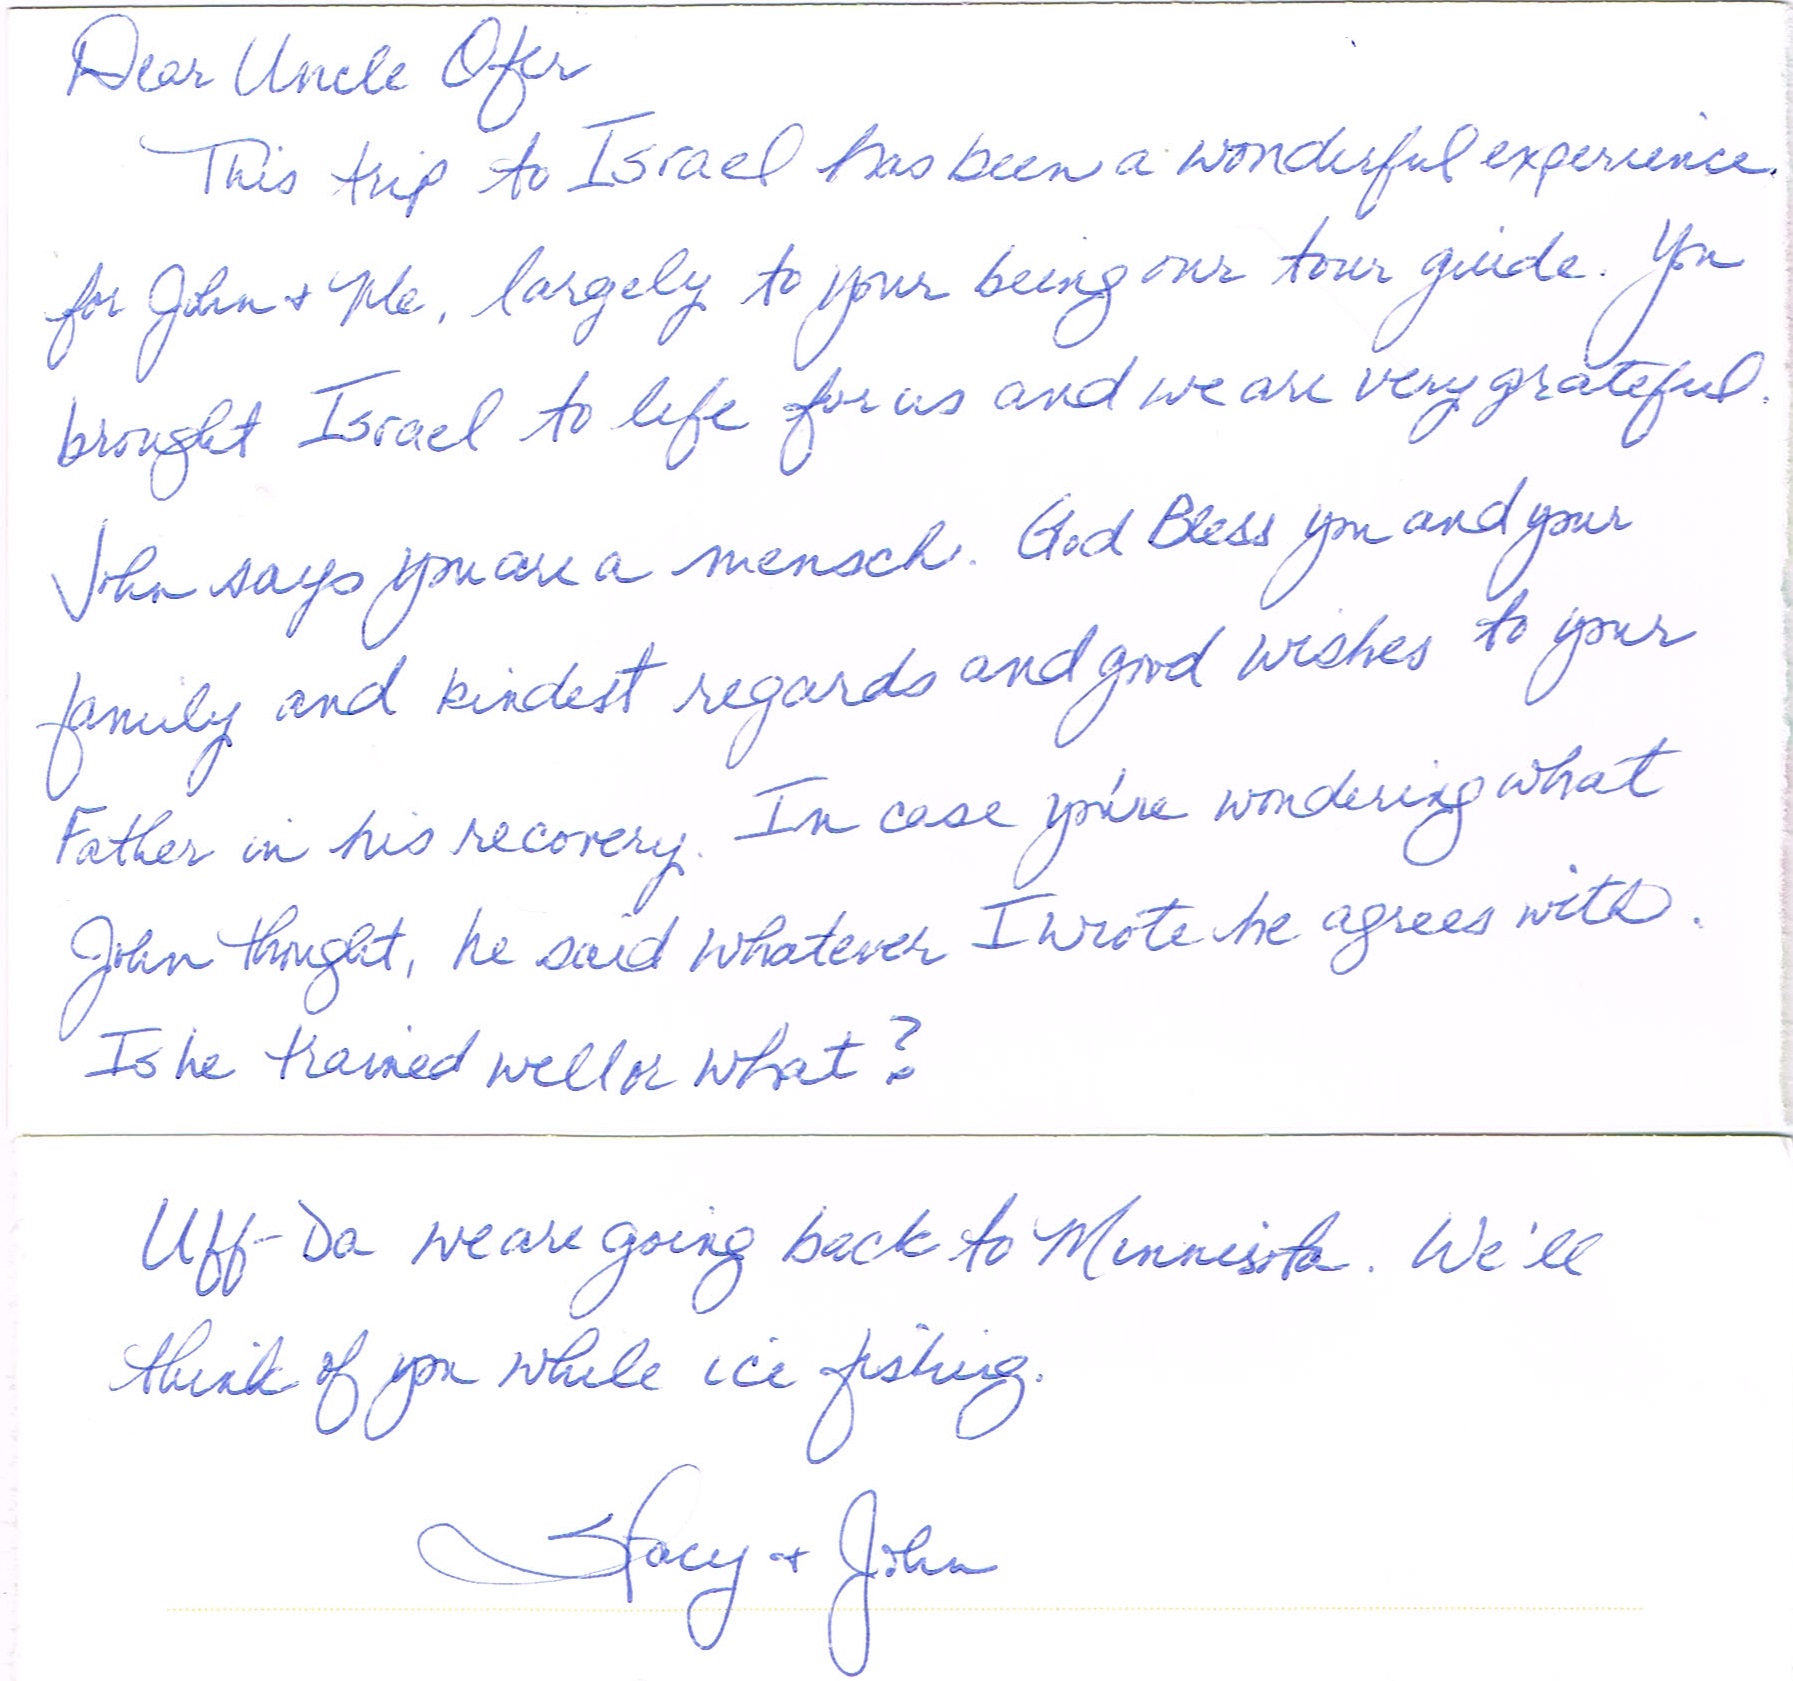 Dear Uncle Ofer
This trip to Israel has been a wonderful experience.
for John + Me, largely to your being our tour guide. You
brought Israel to life for us and we are very grateful.
John says you are a mensch. God Bless you and your
family and kindest regards and good wishes to your
Father in his recovery. In case you're wondering what
John thought, he said whatever I wrote he agrees with.
Is he trained well or what?
Uff-Da we are going back to Minnesota. We'll
think of you while ice fishing.
Stacy + John